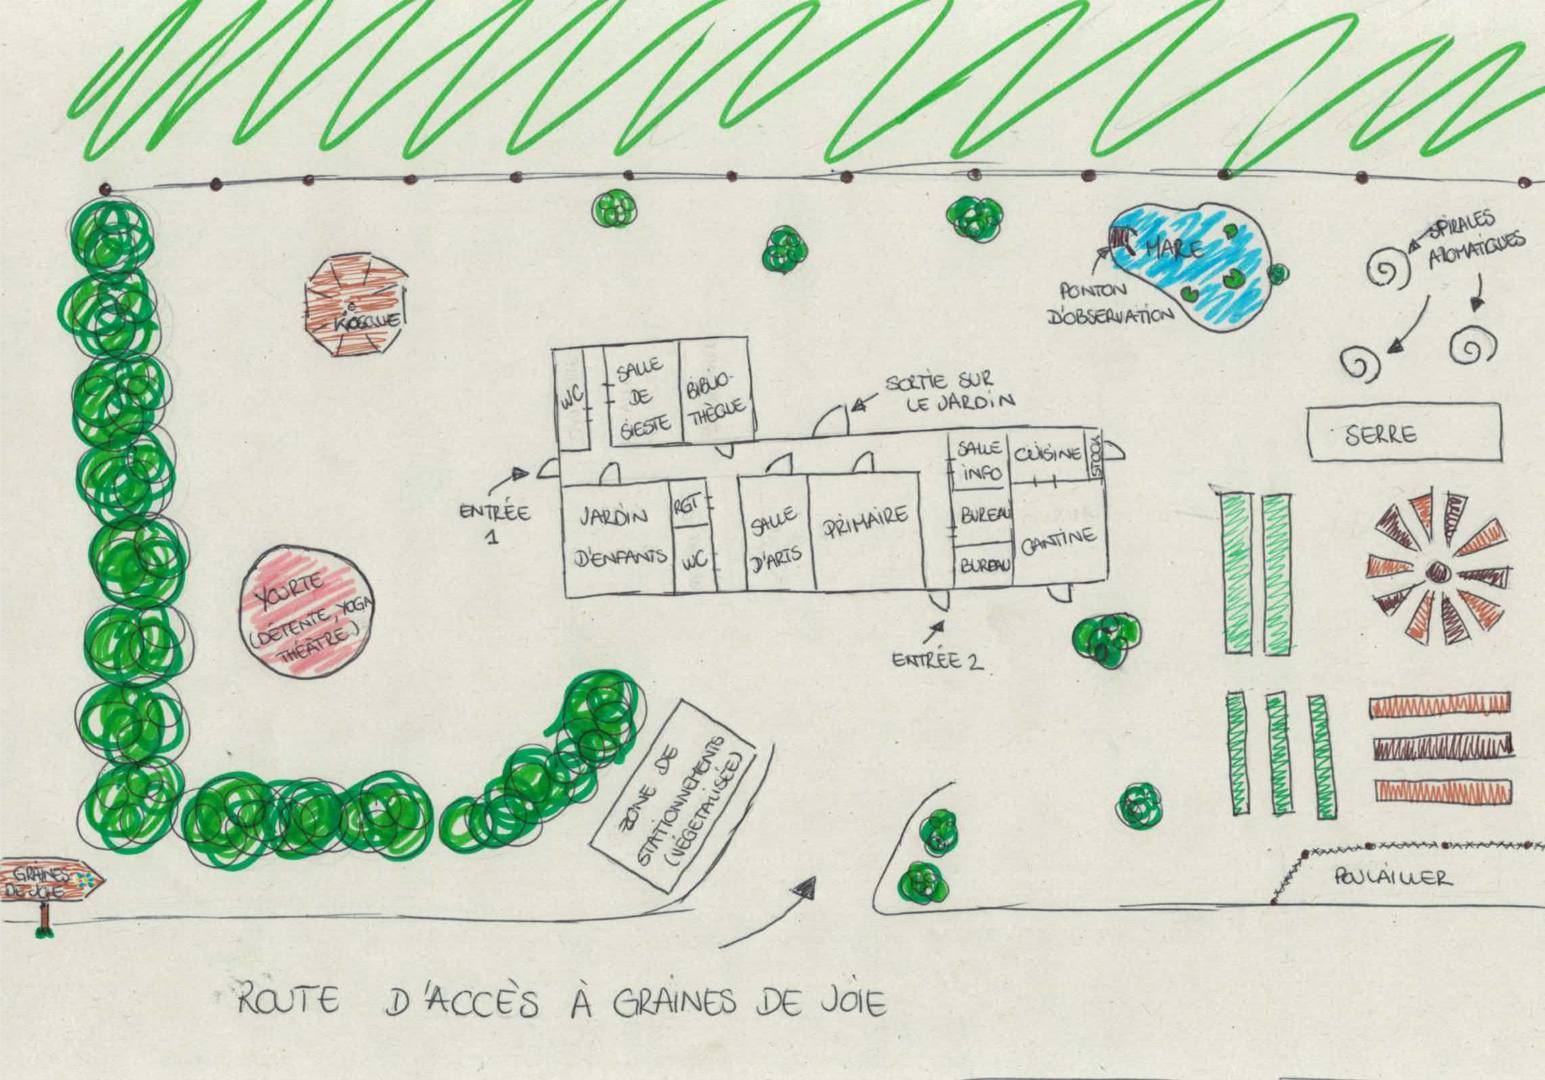 SPIRALES
AROMATIQUES
MARE
PONTON
D'OBSERVATION
KIOSQUE
WC
SALLE
DE
SIESTE
BIBLIO-
THÈQUE
SORTIE SUR
LE JARDIN
SERRE
SALLE
INFO
CUISINE
STOCK
ENTRÉE
1
JARDIN
D'ENFANTS
RGT
WC
SALLE
D'ARTS
PRIMAIRE
BUREAU
BUREAU
CANTINE
YOURTE
(DÉTENTE, YOGA
THÉATRE)
ENTRÉE 2
ZONE DE
STATIONNEMENTS
(VÉGETALISÉE)
GRAINES
DE JOIE
POULAILLER
ROUTE D'ACCÈS À GRAINES DE JOIE